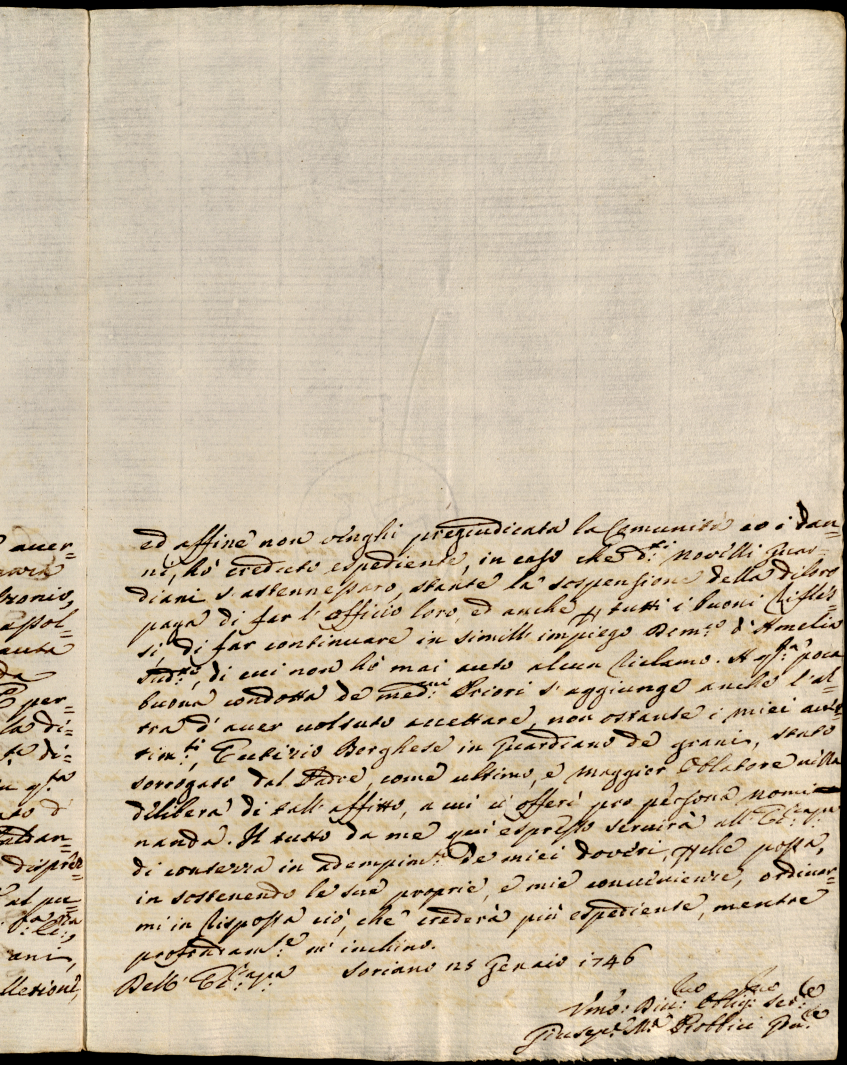 auer=
apol=
da
per=
la di=
di=
d'
dispre=
ani,
ed affine non venghi pregiudicata la Comunità eo i dan=
ni, hò creduto espediente, in caso che d.ti novelli Guar=
diani s'astenessaro, stante la sospensione della di loro
paga di far l'officio loro, ed anche p tutti i buoni riflez=
si, di far continuare in simill' impiego Dem.co d'Amelia
sud.to, di cui non hò mai auto alcun reclamo. A q.sta poca
buona condotta de med.mi Priori s'aggiunge anche l'al=
tra d'auer uolsuto accettare, non ostante i miei auer=
tim.ti, Eutizio Borghese in Guardiano de grani, stato
sorrogato dal Padre, come ultimo, e maggior Oblatore nella
delibera di tall' affitto, a cui s'offerì pro persona nomi=
nanda. Il tutto da me qui espresso seruirà all'
di contezza in adempim.to de miei doveri, p che possa,
in sostenendo le sue proprie, e mie conuenienze, ordinar=
mi in risposta ciò, che crederà più espediente, mentre
profondam.te m'inchino.
Soriano 25 Genaio 1746
Vmo: Diu: Oblig: Ser.e
Giusep.e M.a